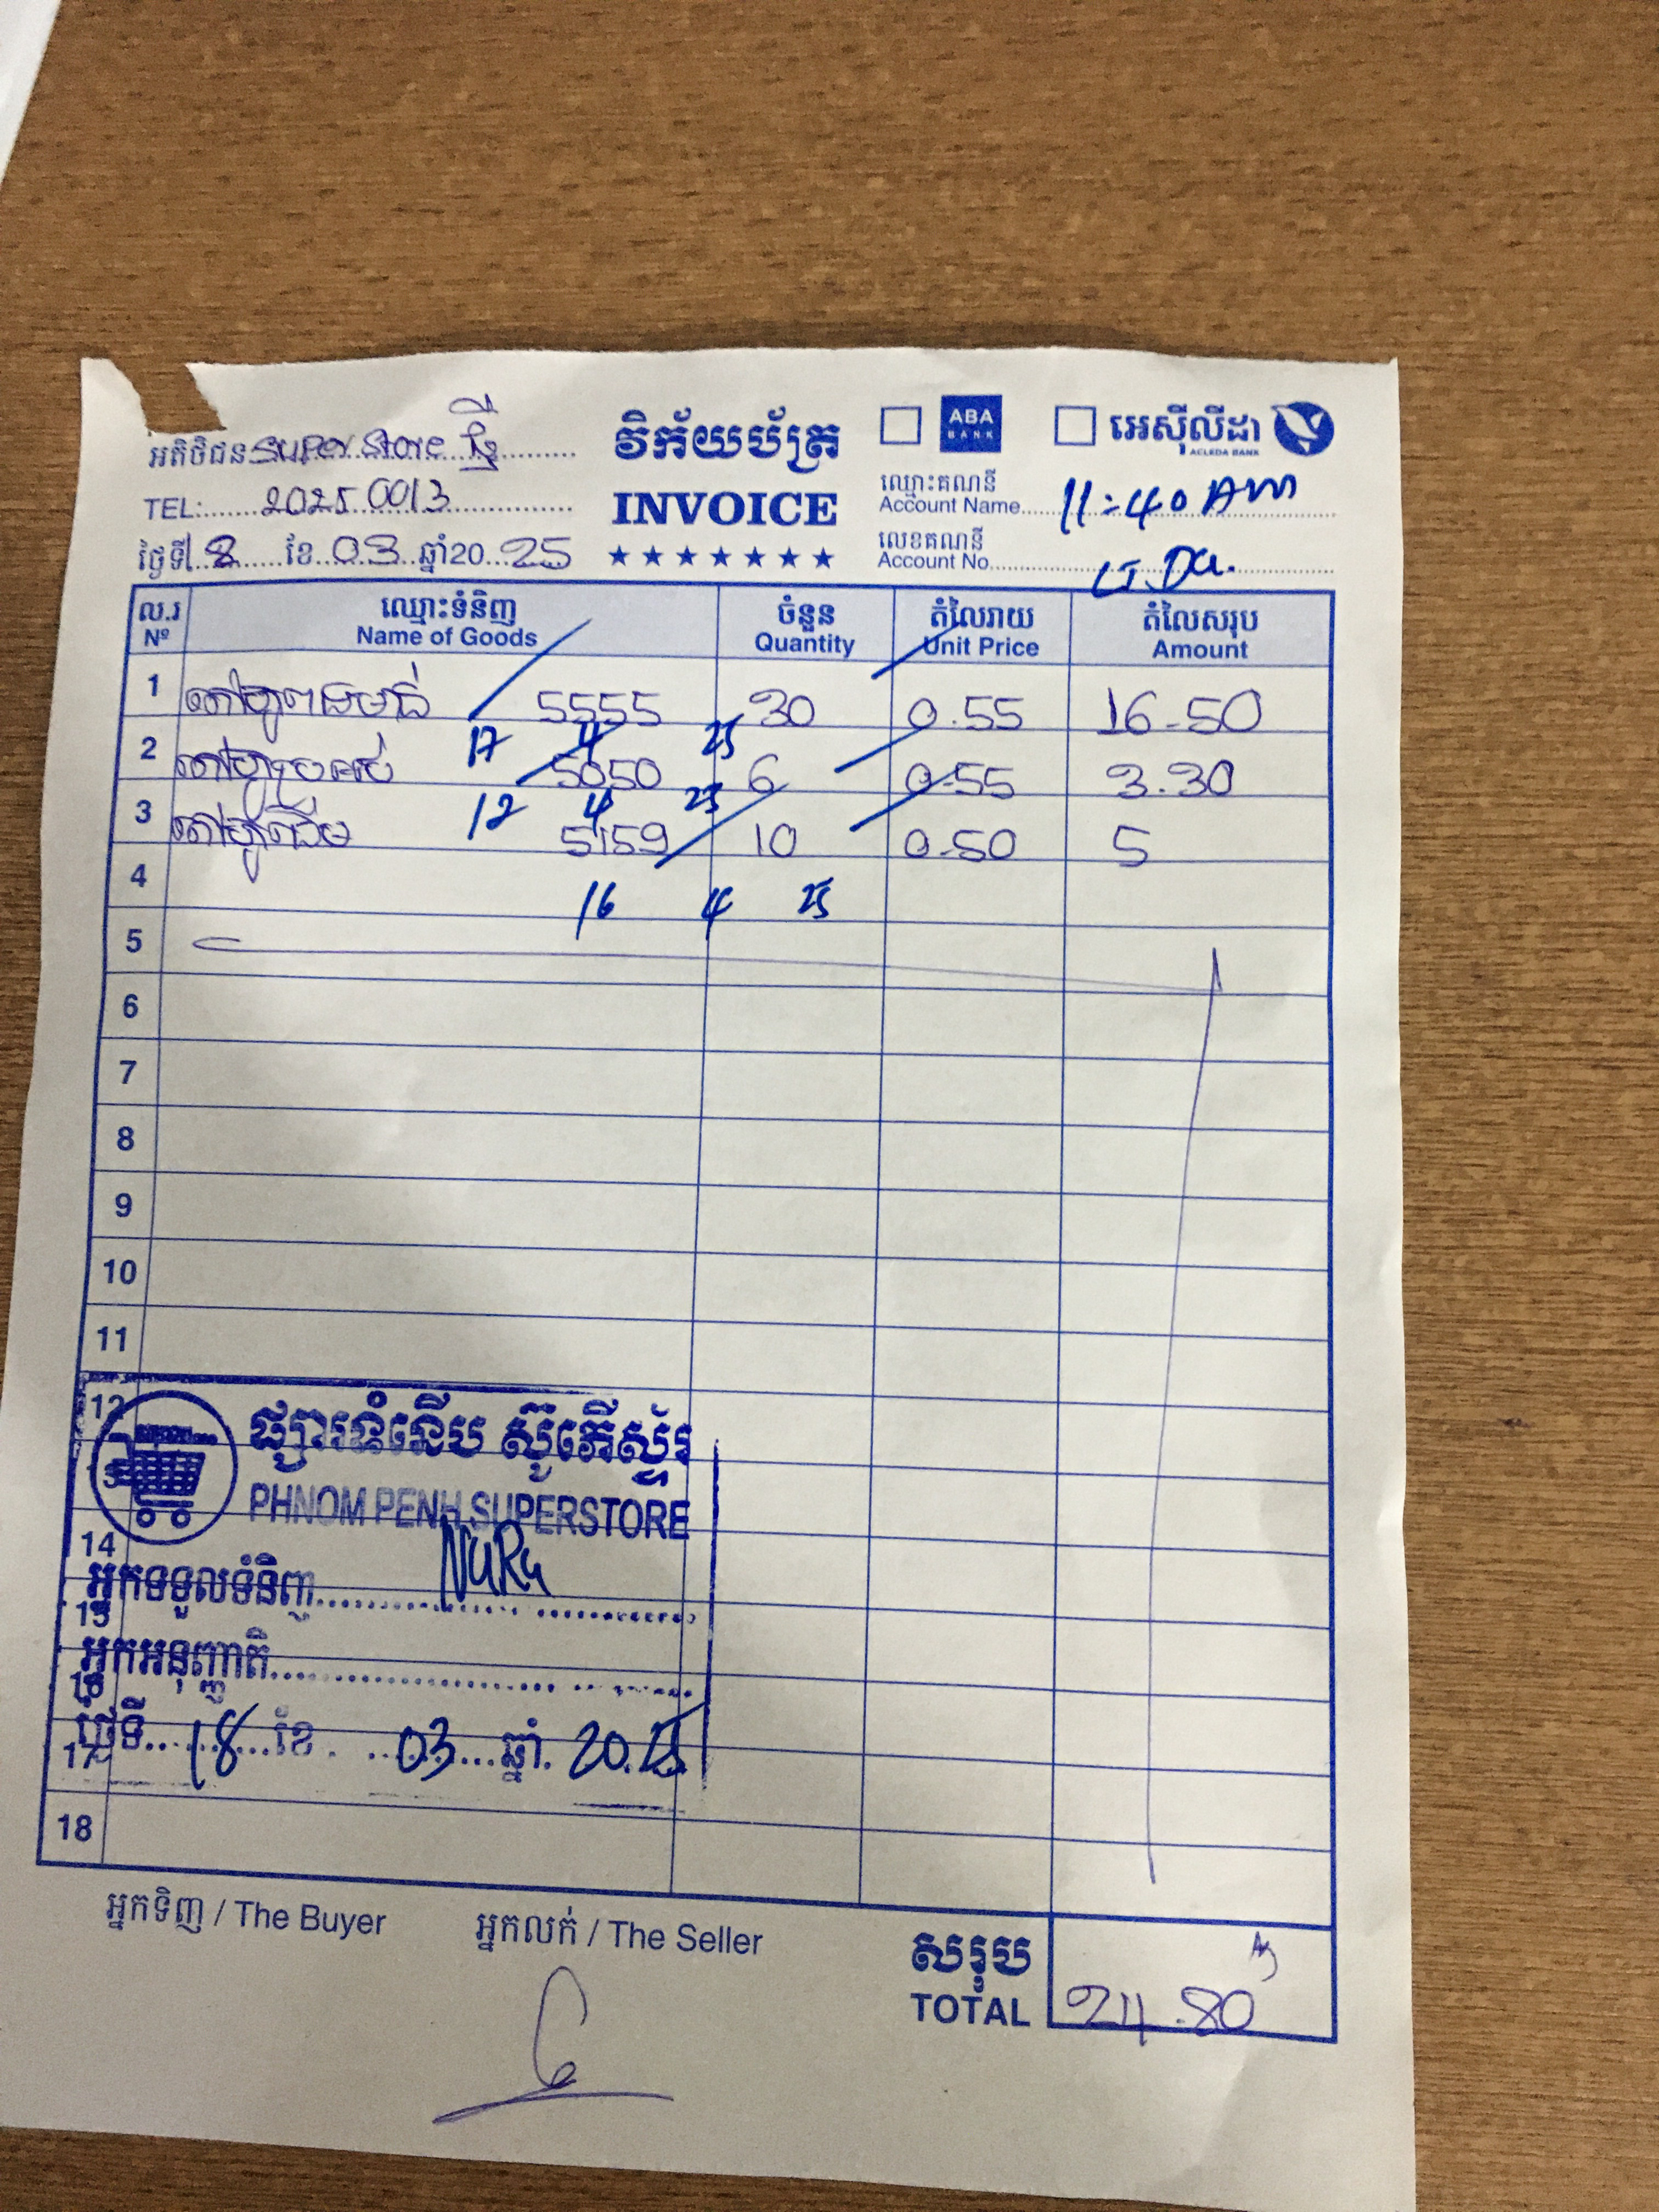 អតិថិជន Super Store ថ្មី
វិក័យប័ត្រ
ABA BANK
អេស៊ីលីដា
ACLEDA BANK
TEL: 2025 0013
INVOICE
ឈ្មោះគណនី
Account Name 11:40 AM
ថ្ងៃទី 18 ខែ 03 ឆ្នាំ20 25
លេខគណនី
Account No.
ល.រ ឈ្មោះទំនិញ ចំនួន តំលៃរាយ តំលៃសរុប
Nº Name of Goods Quantity Unit Price Amount
1 តៅហ៊ូពងមាន់ 5555 30 0.55 16.50
17 4 25
2 5050 6 0.55 3.30
12 4 25
3 តៅហ៊ូដើម 5159 10 0.50 5
4 16 4 25
5
6
7
8
9
10
11
12
ផ្សារទំនើប ស៊ូភើស្ទ័រ
13
PHNOM PENH SUPERSTORE
14
អ្នកទទួលទំនិញ NuRu
15
អ្នកអនុញ្ញាតិ
16
ថ្ងៃទី 18 ខែ 03 ឆ្នាំ 2025
17
18
អ្នកទិញ / The Buyer
អ្នកលក់ / The Seller
សរុប
TOTAL 24.80